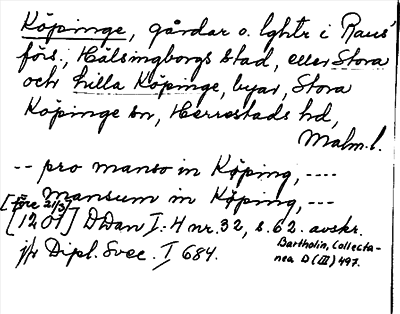 Köpinge, gårdar o. lghtr i Raus'
förs., Hälsingborgs stad, eller Stora
och Lilla Köpinge, byar, Stora
Köpinge sn, Herrestads hd,
Malm. l.
-- pro manso in Köping, ----
mansum in Köping, ---
[före 21/3]
[1201] DDan I:4 nr. 32, s. 62. avskr.
Bartholin, Collecta-
nea D (III) 497.
jfr Dipl. Svec. I 684.